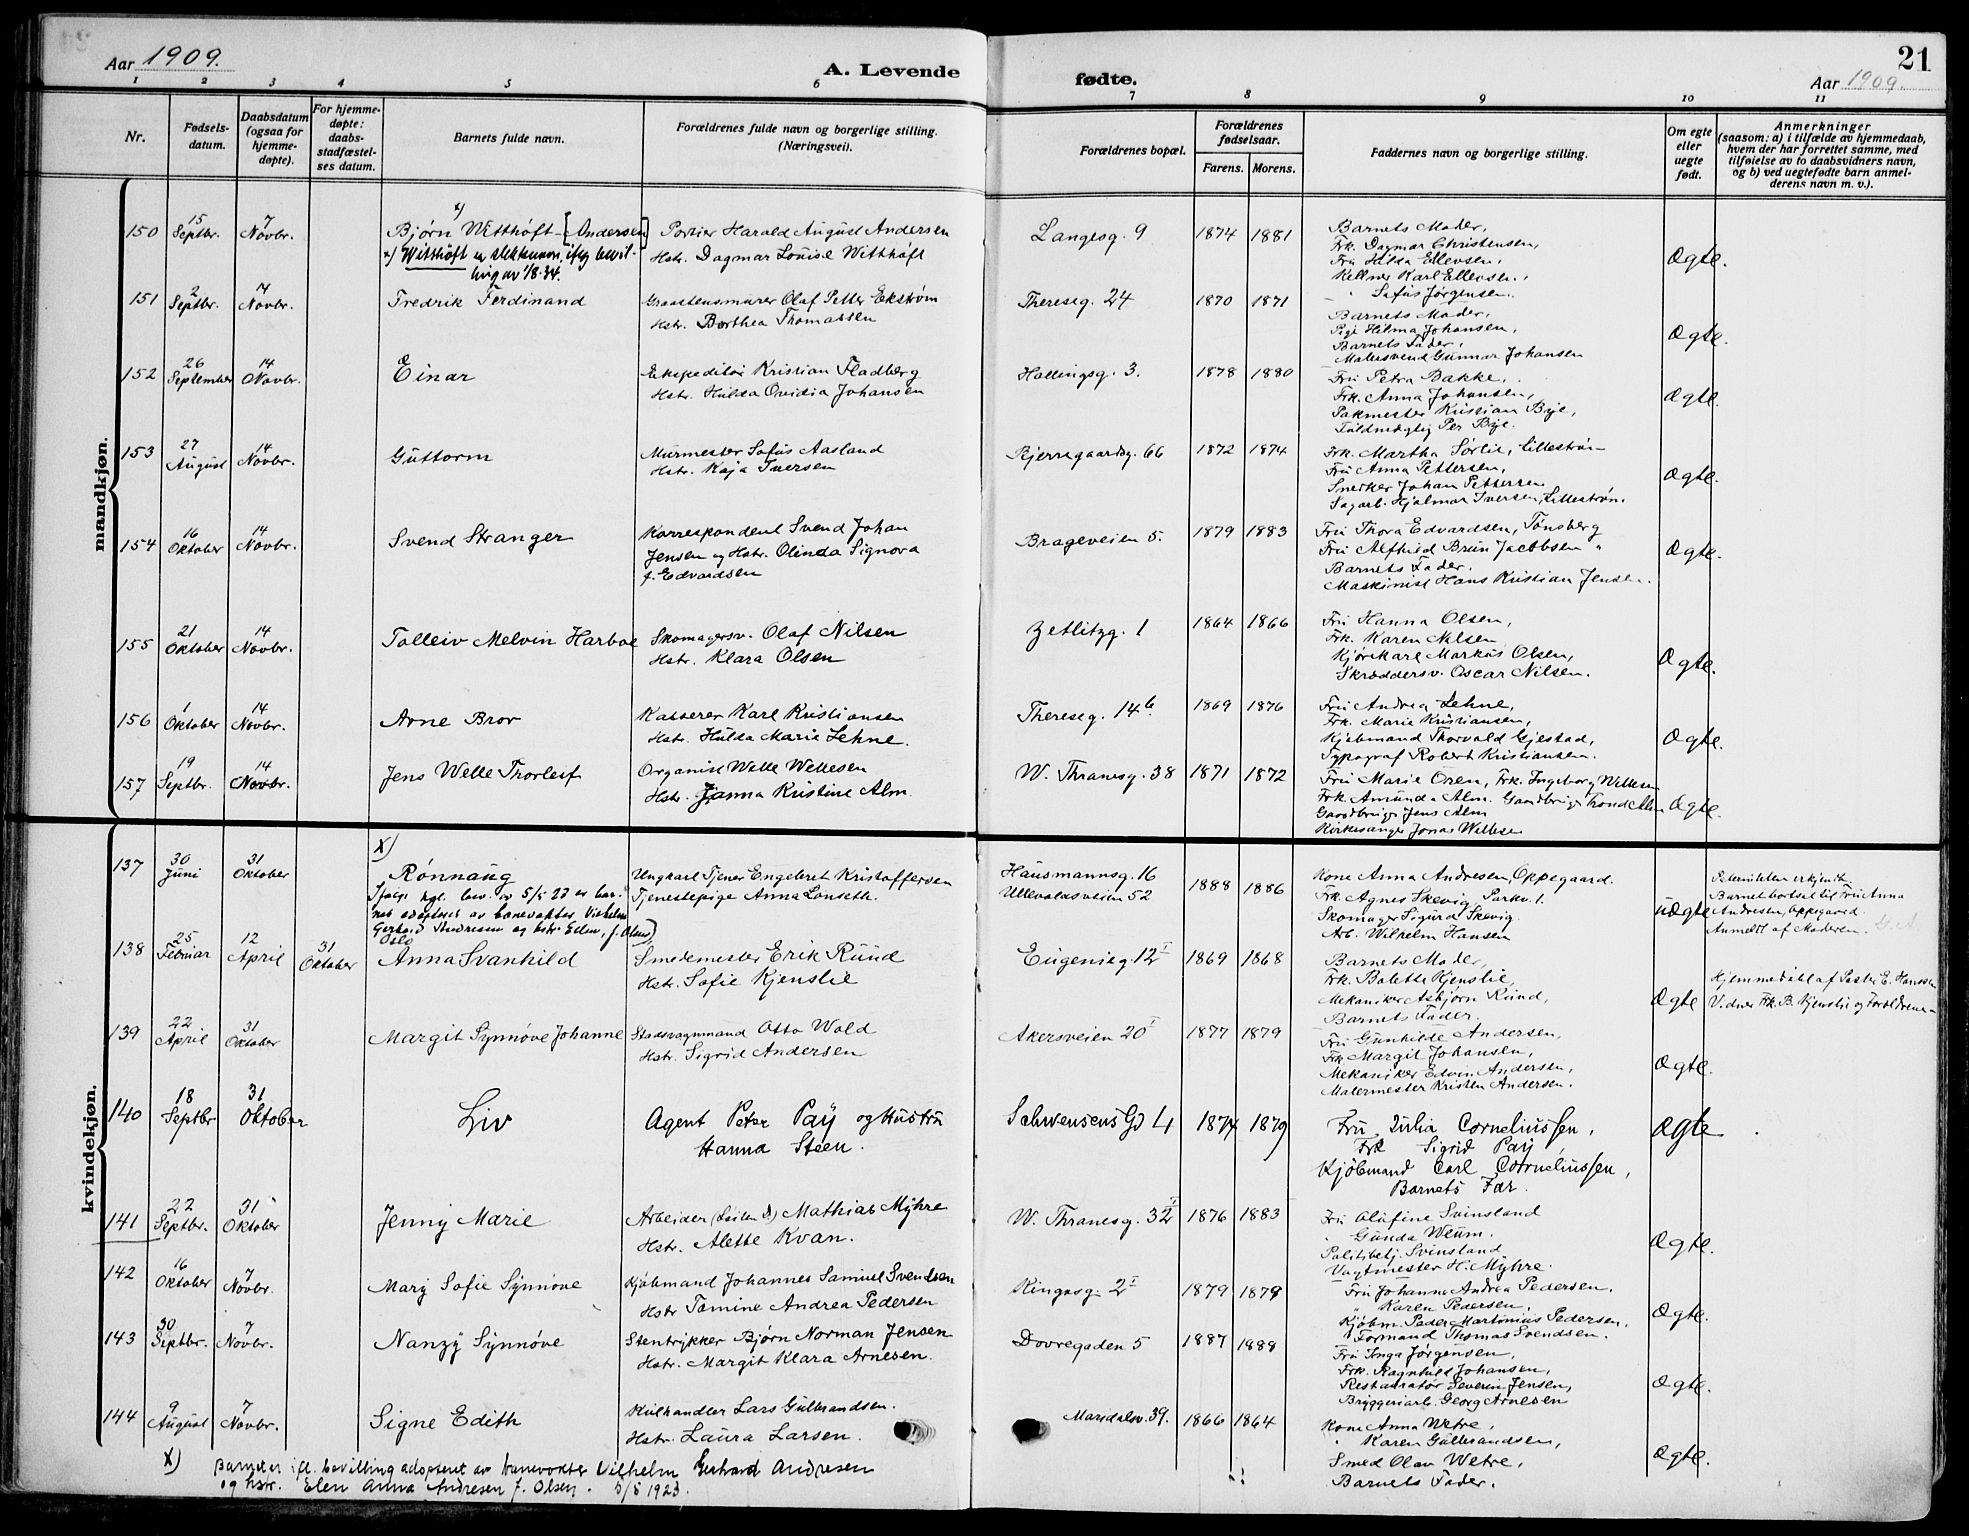 Aar 1909.
A. Levende fødte.
21
Aar 1909.
1 2 3 4 5 6 7 8 9 10 11
Nr.
Fødsels-
datum.
Daabsdatum
(ogsaa for
hjemme-
døpte).
For hjemme-
døpte:
daabs-
stadfæstel-
ses datum.
Barnets fulde navn.
Forældrenes fulde navn og borgerlige stilling.
(Næringsvei).
Forældrenes bopæl.
Forældrenes
fødselsaar.
Farens. Morens.
Faddernes navn og borgerlige stilling.
Om egte
eller
uegte
født.
Anmerkninger
(saasom: a) i tilfælde av hjemmedaab,
hvem der har forrettet samme, med
tilføielse av to daabsvidners navn,
og b) ved uegtefødte barn anmel-
derens navn m. v.).
mandkjøn.
150
15
Septbr.
7
Novbr.
x)
Bjørn Witthøft - [Andersen]
x) Witthøft er slektsnavn, iføg bevil-
ling av 1/8.34.
Portier Harald August Andersen
Hstr. Dagmar Louise Witthöft
Langesg. 9
1874 1881
Barnets Moder,
Frk. Dagmar Christensen,
Fru Hilda Ellevsen,
Kellner Karl Ellevsen,
" Sofus Jørgensen.
Ægte.
151
2
Septbr.
14
Novbr.
Fredrik Ferdinand
Graastensmurer Olaf Petter Ekström
Hstr. Borthea Thomassen
Theresesg. 24
1870 1871
Barnets Moder,
Pige Hilma Johansen,
Barnets Fader,
Malersvend Gunnar Johansen
Ægte.
152
26
September
14
Novbr.
Einar
Ekspeditör Kristian Fladberg
Hstr. Hulda Ovidia Johansen
Hallingsg. 3.
1878 1880
Fru Petra Bakke,
Frk. Anna Johansen,
Pakmester Kristian Bye,
Toldmægtig Per Bye.
Ægte.
153
27
August
14
Novbr.
Guttorm
Murmester Sofus Aasland
Hstr. Kaja Iversen
Bjerregaardsg. 66
1872 1874
Frk. Martha Sørlie, Lillestrøm
Fru Anna Pettersen,
Snerker Johan Pettersen
Sagarb. Hjalmar Iversen, Lillestrøm.
Ægte.
154
16
Oktober
14
Novbr.
Svend Stranger
Korrespondent Svend Johan
Jensen og Hstr. Olinda Signora
f. Edvardsen
Brageveien 5.
1879 1883
Fru Thora Edvardsen, Tønsberg
Fru Alfhild Brun Jacobsen "
Barnets Fader.
Maskinist Hans Kristian Jensen.
Ægte.
155
21
Oktober
14
Novbr.
Tolleiv Melvin Harboe
Skomagersv. Olaf Nilsen
Hstr. Klara Olsen
Zetlitzg. 1
1864 1866
Fru Hanna Olsen,
Frk. Karen Nilsen
Kjørekarl Markus Olsen,
Skræddersv. Oscar Nilsen.
Ægte.
156
1
Oktober
14
Novbr.
Arne Bror
Kasserer Karl Kristiansen
Hstr. Hulda Marie Lehne.
Theresesg. 14b.
1869 1876
Fru Andrea Lehne,
Frk. Marie Kristiansen,
Kjøbmand Thorvald Gjestad,
Typograf Robert Kristiansen.
Ægte.
157
19
Septbr.
14
Novbr.
Jens Welle Thorleif
Organist Welle Wellesen
Hstr. Janna Kristine Alm.
W. Thranesg. 38
1871 1872
Fru Marie Oren, Frk. Ingeborg Wellesen
Frk. Amunda Alm. Gaardbruger Trond Alm
Gaardbruger Jens Alm
Kirkesanger Jonas Wellesen
Ægte.
kvindekjøn.
137
30
Juni
31
Oktober
x)
Rønnaug
Ifølge kgl. bev. av 5/5 23 er bar-
net adoptert av banevokter Vilhelm
Gerhard Andresen og hstr Elen, f. Olsen)
Oslo
Ungkarl Tjener Engebret Kristoffersen
Tjenestepige Anna Lonseth.
Hausmannsg. 16
Ullevoldsveien 52
1888 1886
Kone Anna Andresen, Oppegaard.
Frk. Agnes Skevig, Parkv. 1.
Skomager Sigurd Skevig.
Arb. Wilhelm Hansen
uægte
Barnet bortsat til Fru Anna
Andresen, Oppegaard.
Anmeldt af Moderen.
138
25
Februar
12
April
31
Oktober
Anna Svanhild
Smedemester Erik Ruud
Hstr. Sofie Kjenslie
Eugeniesg. 12 I
1869 1868
Barnets Moder,
Frk. Bolette Kjenslie,
Mekaniker Asbjörn Ruud,
Barnets Fader.
Ægte
Hjemmedöbt af Pastor E. Hanssen
Vidner Frk. B. Kjenslie og Forældrene
139
22
April
31
Oktober
Margit Synnøve Johanne
Stadsvognmand Otto Wold
Hstr. Sigrid Andersen
Akersveien 20 I
1877 1879
Fru Gunhilde Andersen,
Frk Margit Johansen,
Mekaniker Edvin Andersen,
Malermester Kristen Andersen.
Ægte.
140
18
Septbr
31
Oktober
Liv
Agent Peter Paÿ og Hustru
Hanna Steen.
Schwensens Gd 4
1874 1879
Fru Julia Corneliussen,
Frk Sigrid Paÿ
Kjöbmand Carl Corneliussen,
Barnets Far.
Ægte
141
22
Septbr.
31
Oktober
Jenny Marie
Arbeider Mathias Myhre
Hstr. Alette Kvan.
W. Thranesg. 32 I
1876 1883
Fru Olufine Svinsland
" Gunda Weum.
Politibetj. Svinsland
Vagtmester H. Myhre.
Ægte.
142
16
Oktober
7
Novbr.
Mary Sofie Synnøve
Kjøbmand Johannes Samuel Svendsen
Hstr Tomine Andrea Pedersen
Ringsg. 2 I
1879 1879
Fru Johanne Andrea Pedersen.
" Karen Pedersen.
Kjøbm. Peder Martinius Pedersen,
Formand Thomas Svendsen.
Ægte.
143
30
Septbr.
7
Novbr.
Nanzÿ Synnøve
Stentrykker Bjørn Norman Jensen
Hstr. Margit Klara Arnesen.
Dovregaden 5
1887 1889
Fru Inga Jørgensen,
Frk. Ragnhild Johansen,
Restauratør Severin Jensen,
Bryggeriarb. Georg Arnesen
Ægte.
144
9
August
7
Novbr.
Signe Edith
Kulhandler Lars Gulbrandsen.
Hstr. Laura Larsen.
Maridalsv. 39.
1866 1864
Kone Anna Wetre,
" Karen Gulbrandsen,
Smed Olav Wetre,
Barnets Fader.
Ægte.
x) Barnet er ifl. bevilling adopteret av banevokter Vilhelm Gerhard Andresen
og hstr. Elen Anna Andresen f. Olsen. 5/5 1923.